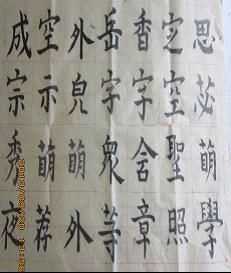 思苾萌學
定空聖照
香字含章
岳字衆等
外皃萌外
空示萌荐
成宗秀夜